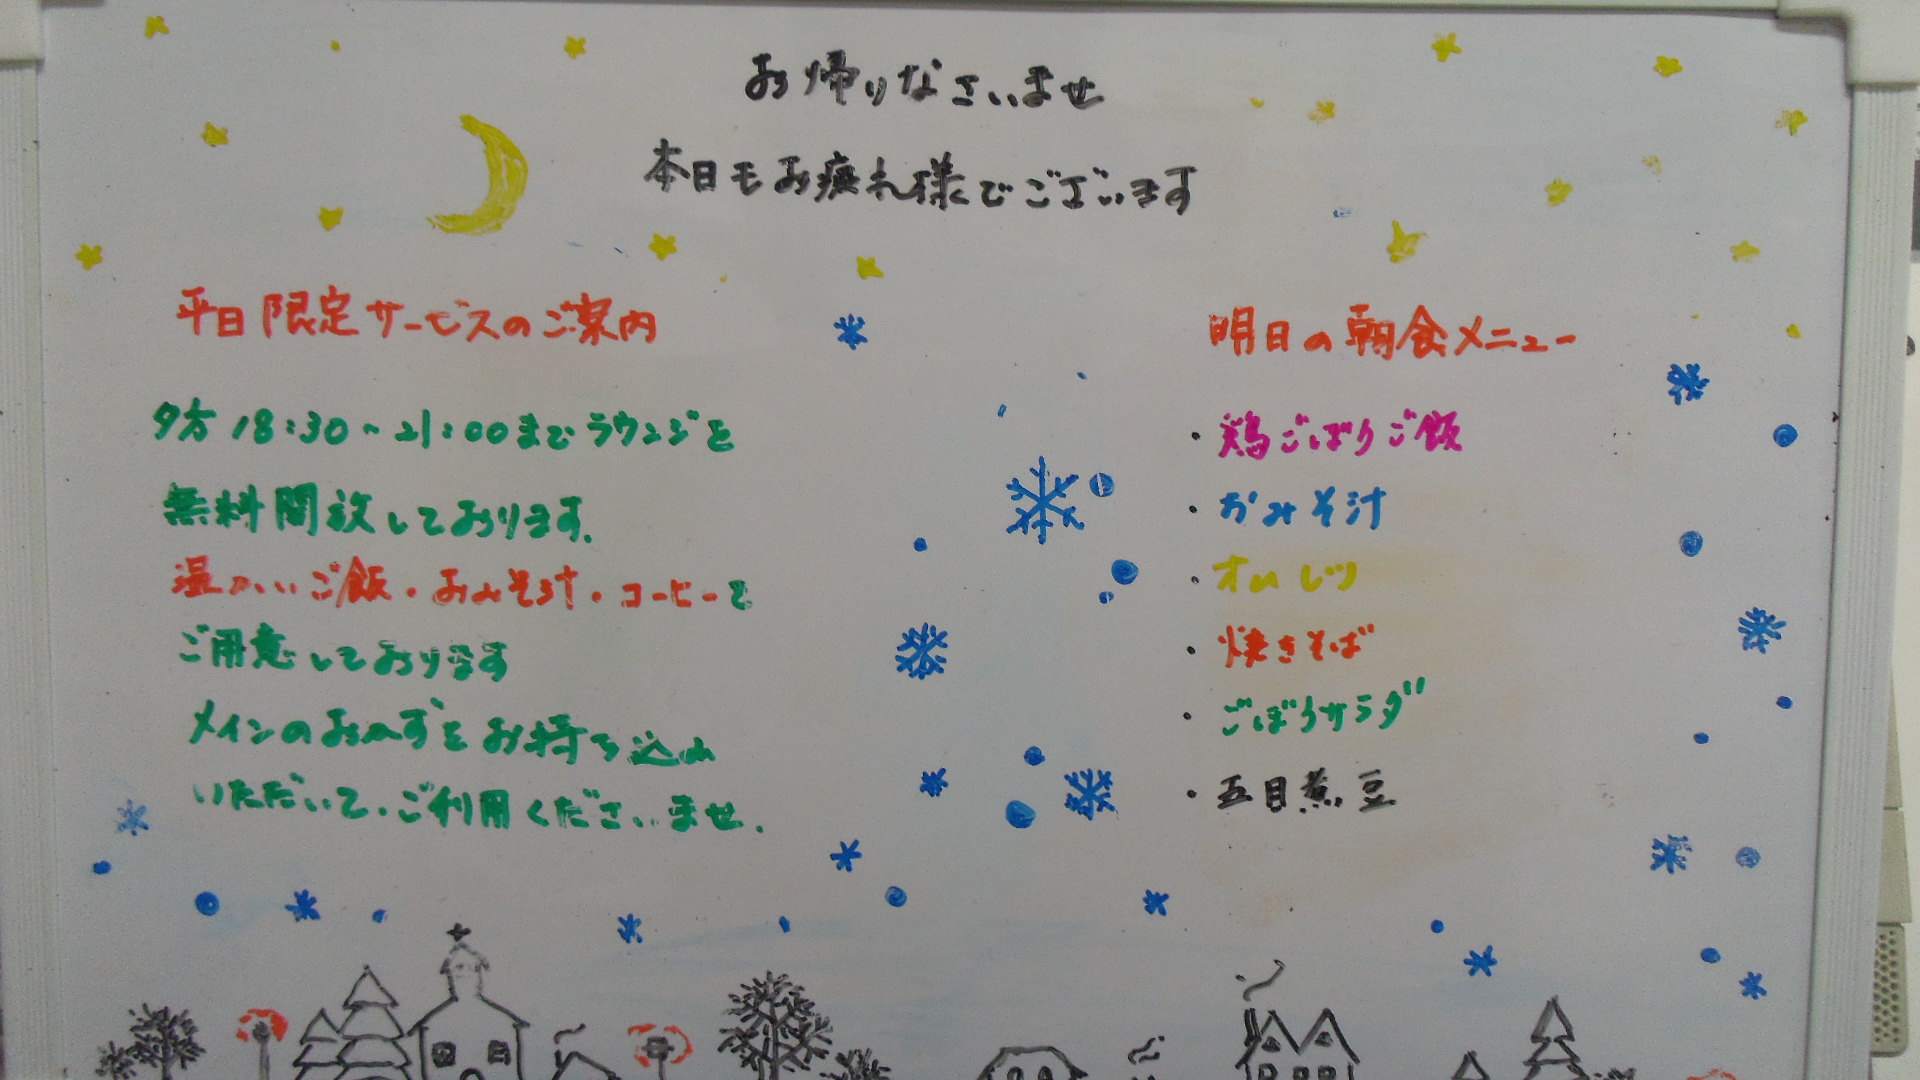 お帰りなさいませ
本日もお疲れ様でございます
平日限定サービスのご案内
夕方18:30~21:00までラウンジを
無料開放しております.
温かいご飯・おみそ汁・コーヒーを
ご用意しております
メインのおかずをお持ち込み
いただいて、ご利用くださいませ.
明日の朝食メニュー
・鶏ごぼうご飯
・おみそ汁
・オムレツ
・焼きそば
・ごぼうサラダ
・五目煮豆